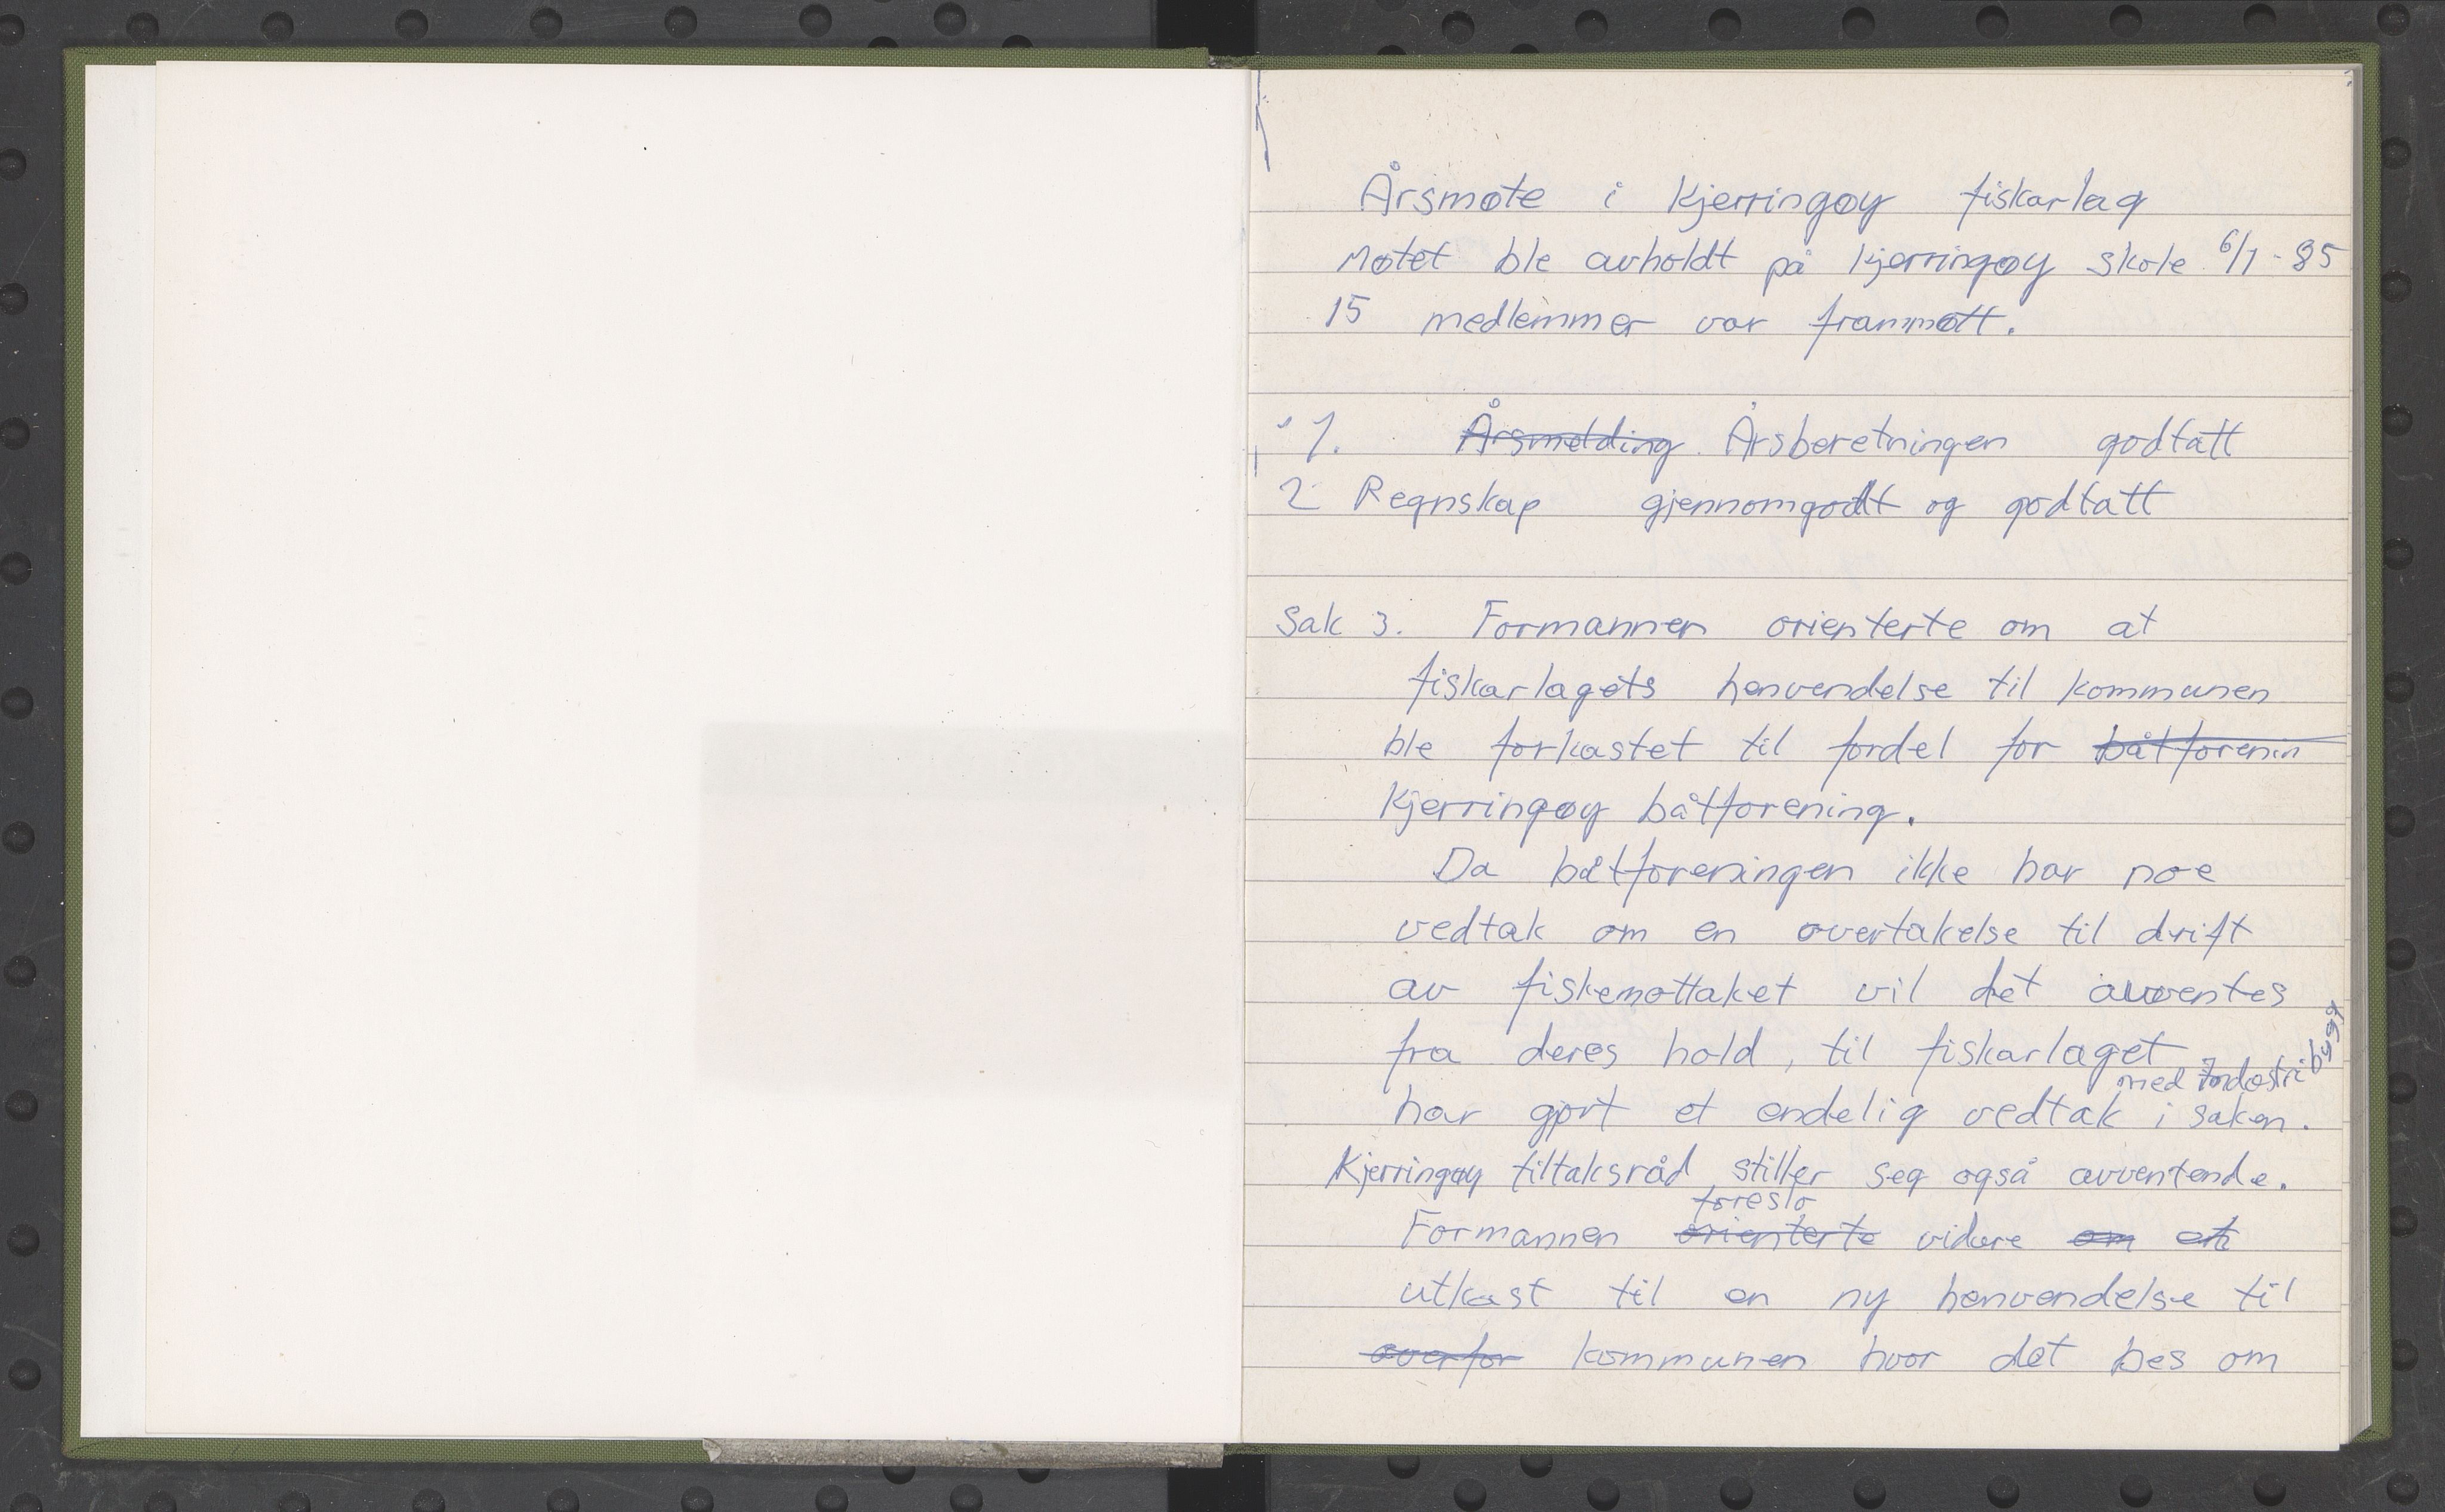 Årsmøte i Kjerringøy fiskarlag
Møtet ble avholdt på Kjerringøy skole 6/1-85
15 medlemmer var frammøtt.
1. Årsmelding Årsberetningen godtatt
2 Regnskap gjennomgådt og godtatt
Sak 3. Formannen orienterte om at
fiskarlagets henvendelse til kommunen
ble forkastet til fordel for båtforenin
Kjerringøy båtforening.
Da båtforeningen ikke har noe
vedtak om en overtakelse til drift
av fiskemottaket vil det avventes
fra deres hold, til fiskarlaget
med Industribygg
har gjort et endelig vedtak i saken.
Kjerringøy tiltaksråd stiller seg også avventende.
foreslo
Formannen orienterte videre om et
utkast til en ny henvendelse til
overfor kommunen hvor det bes om